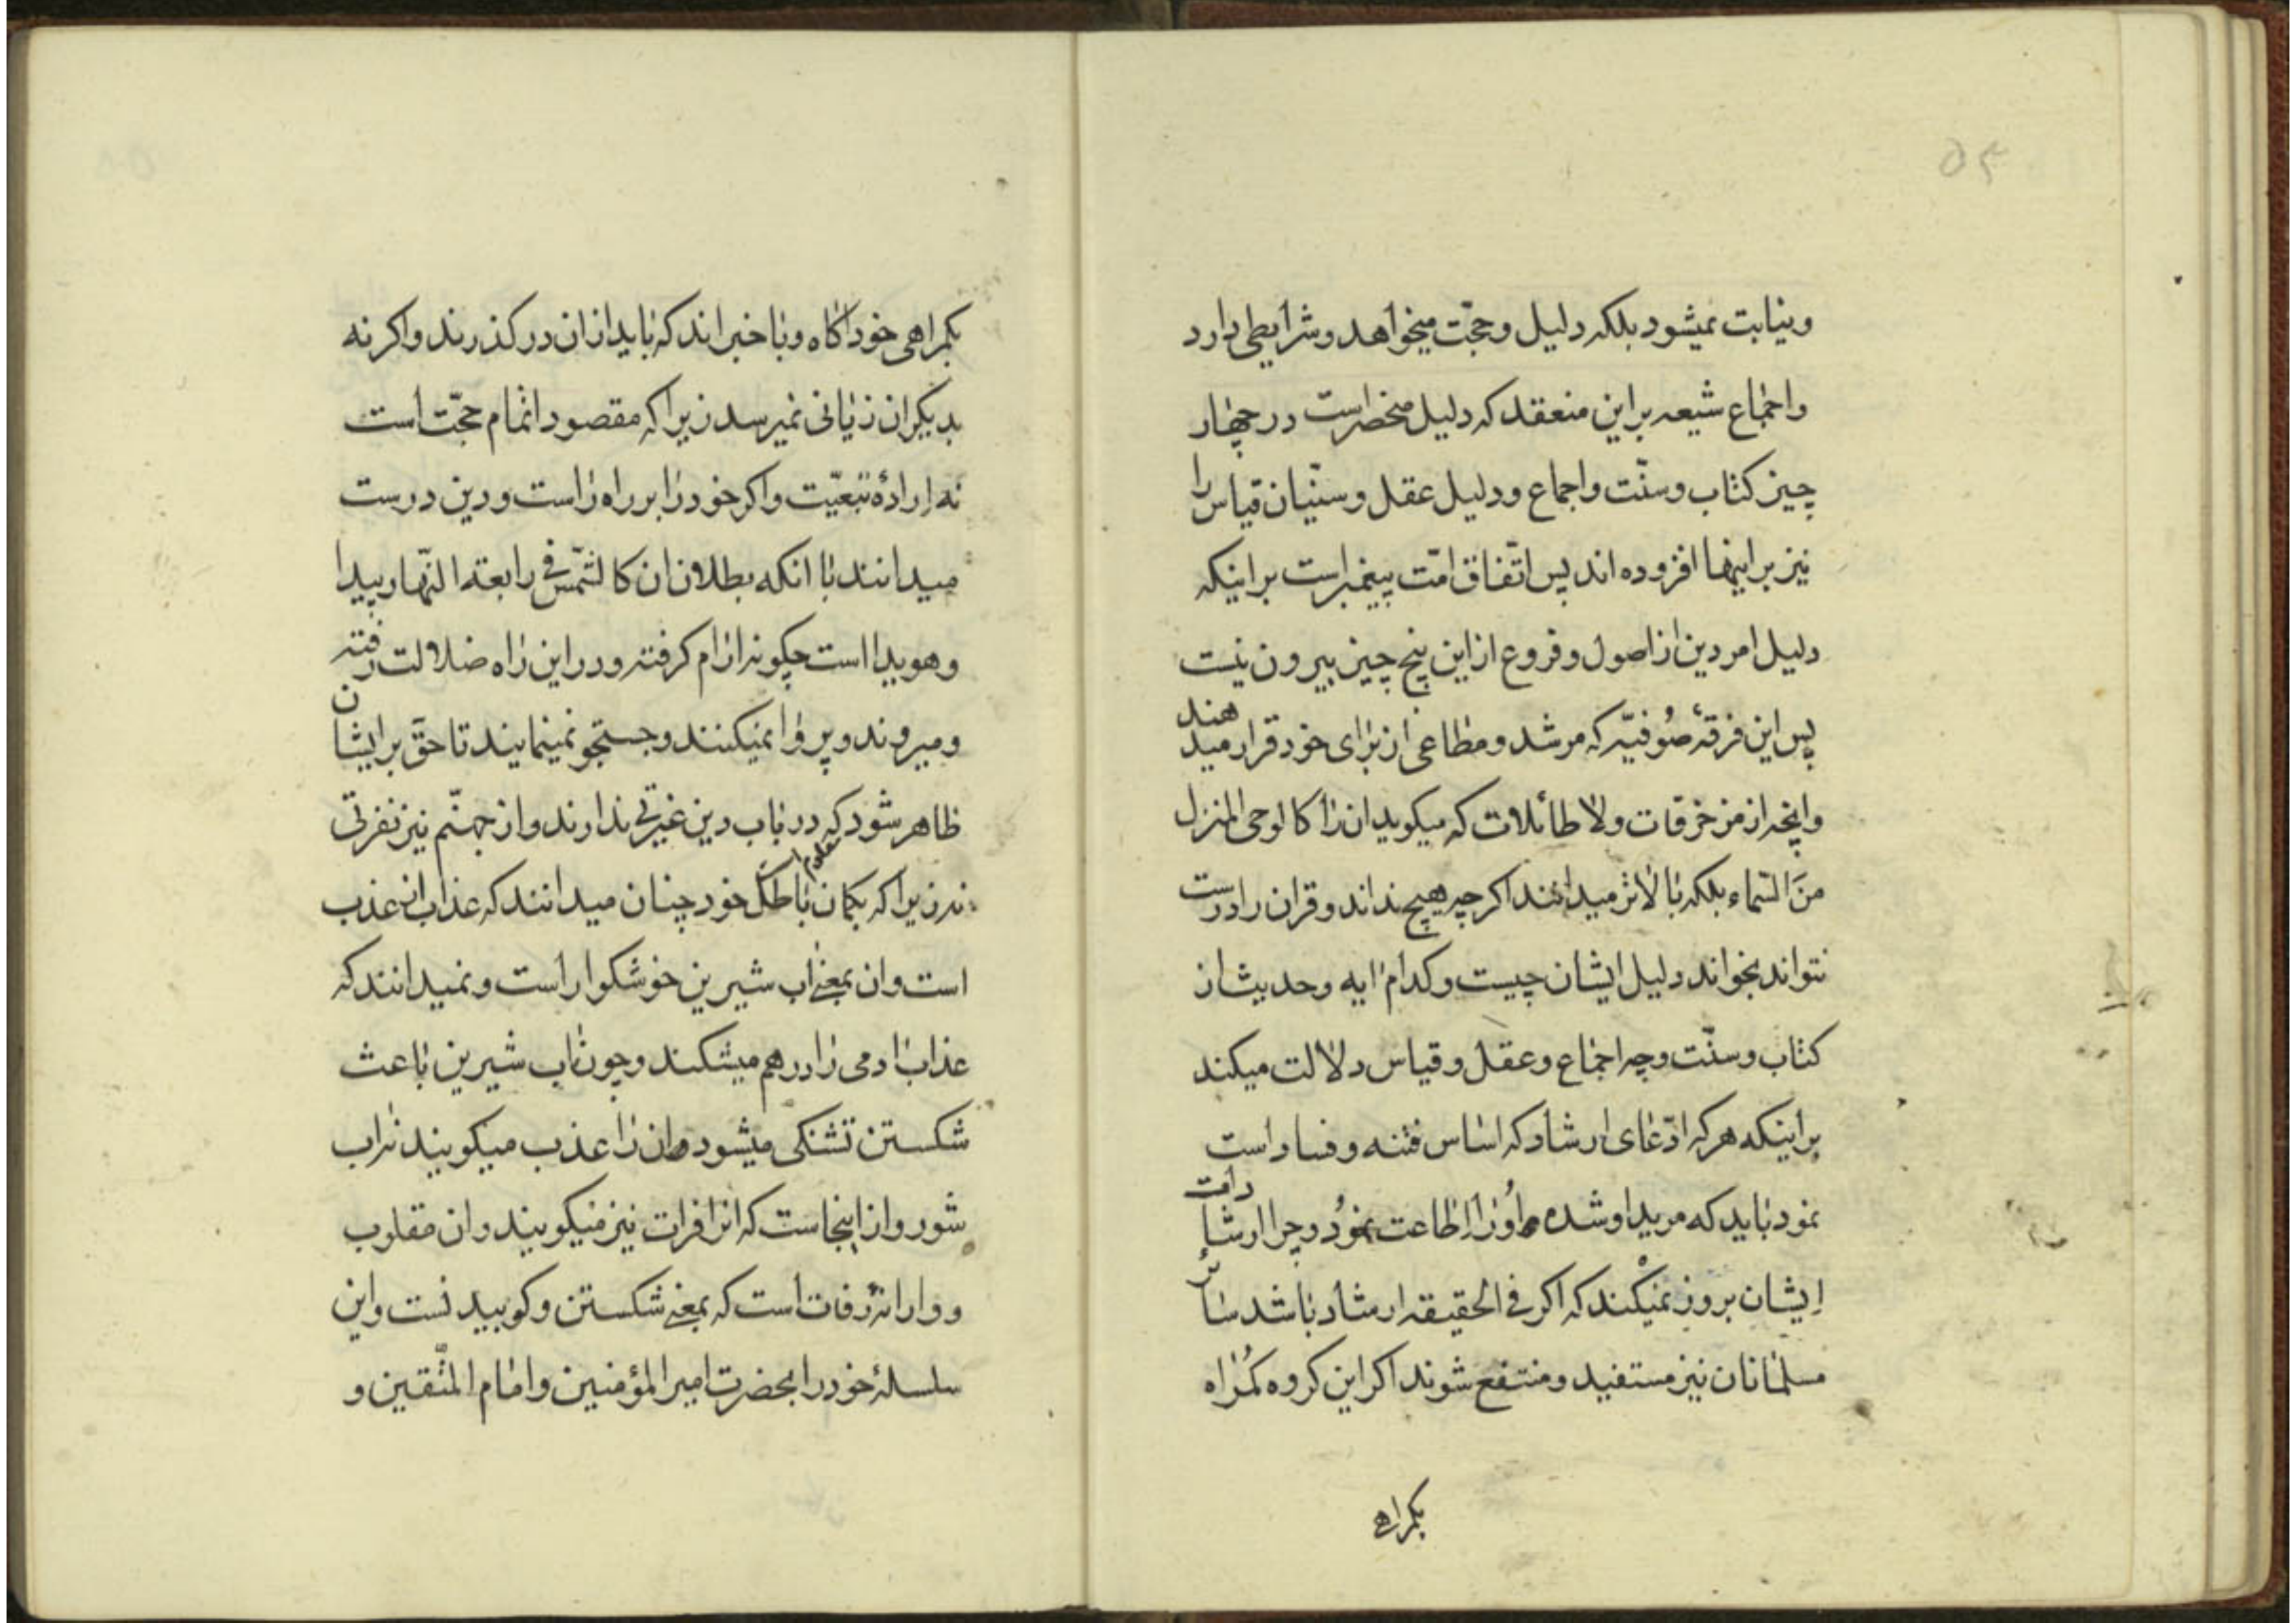 ۵۴
و بنیابت نمیشود بلکه دلیل و حجّت میخواهد و شرایطی دارد
و اجماع شیعه بر این منعقد که دلیل منحصر است در چهار
چیز کتاب و سنّت و اجماع و دلیل عقل و سنّیان قیاس را
نیز بر اینها افزوده اند پس اتّفاق امّت پیغمبر است بر اینکه
دلیل امر دین از اصول و فروع از این پنج چیز بیرون نیست
پس این فرقهٔ صُوفیّه که مرشد و مطاعی از برای خود قرار میدهند
و آنچه از مزخرفات و لا طائلات که میکوید ان را کالوحی المنزل
منَ السّماء بلکه بالاتر میدانند اکرچه هیچ نداند و قران را درست
نتواند بخواند دلیل ایشان چیست و کدام ایه و حدیث از
کتاب و سنّت و چه اجماع و عقل و قیاس دلالت میکند
بر اینکه هر که ادّعای ارشاد که اساس فتنه و فساد است
نمود باید که مرید او شده و اُو را اِطاعت نمُود و چرا ارشادات
اِیشان بروز نمیکند که اکر فی الحقیقه ارشاد باشد سایر
مسلمانان نیز مستفید و منتفع شوند اکر این کروه کمُراه
بکمراهی
بکمراهی خود اکاه و با خبر اند که باید از ان درکذرند و اکر نه
بدیکران زیانی نمیرسد زیرا که مقصود اتمام حجّت است
نه ارادهٔ تبعیّت و اکر خود را بر راه راست و دین درست
میدانند با انکه بطلان ان کالشّمس فی رابعة النّهار پیدا
و هویدا است چکونه ارام کرفته و در این راه ضلالت رفته
و میروند و پروا نمیکنند و جستجو نمینمایند تا حقّ بر ایشان
ظاهر شود که در باب دین غیرتی ندارند و از جهنّم نیز نفرتی
نه زیرا که بکمان باطل خود چنان میدانند که عذاب از عذب
است و ان بمعنی اب شیرین خوشکوار است و نمیدانند که
عذاب ادمی را در هم میشکند و چون اب شیرین باعث
شکستن تشنکی میشود ان را عذب میکویند نه اب
شور و از اینجاست که انرا فرات نیز میکویند و ان مقلوب
و وارانهٔ رفات است که بمعنی شکستن و کوبیدنست و این
سلسلهٔ خود را بحضرت امیر المؤمنین و امام المتّقین و